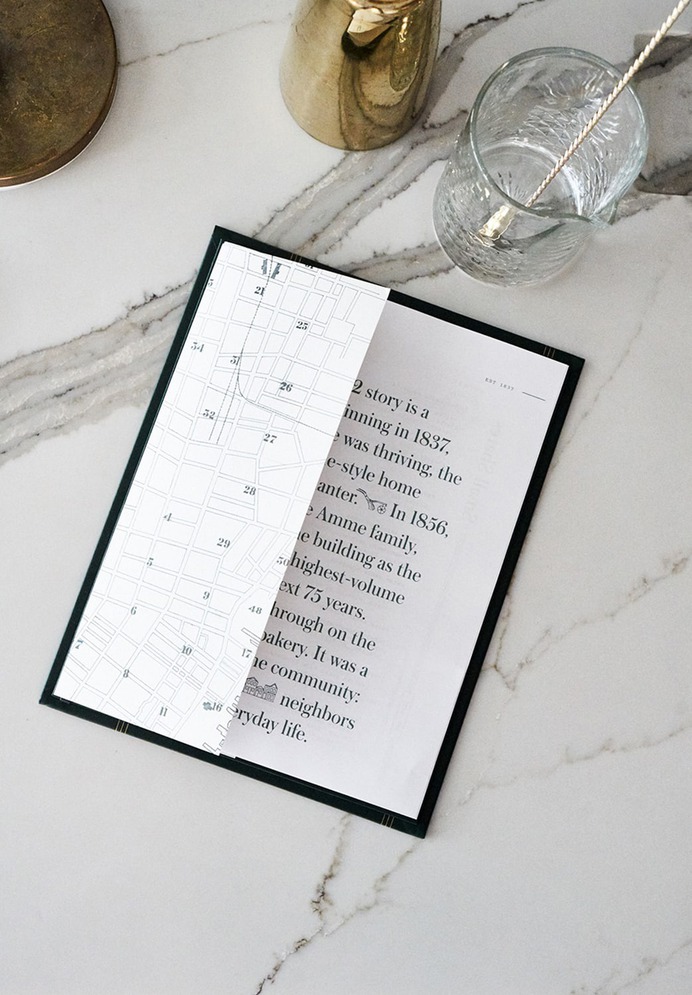 21
25
34
31
26
32
27
28
4
29
5
30
9
6
48
7
10
17
8
11
16
EST 1837
2 story is a
inning in 1837,
was thriving, the
e-style home
anter. In 1856,
e Amme family,
e building as the
highest-volume
ext 75 years.
hrough on the
bakery. It was a
he community:
neighbors
eryday life.